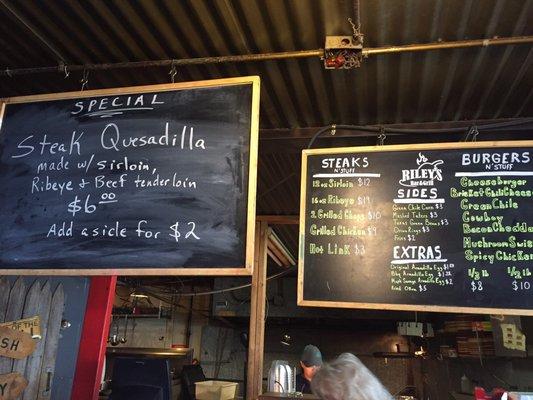 SPECIAL
Steak Quesadilla
made w/ sirloin,
Ribeye & Beef tenderloin
$6.00
Add a side for $2
STEAKS
N' STUFF
12 oz Sirloin $12
16 oz Ribeye $19
2 Grilled Chops $10
Grilled Chicken $9
Hot Link $3
RILEY'S
Bar & Grill
SIDES
Green Chile Corn $3
Mashed Taters $3
Texas Green Beans $3
Onion Rings $3
Fries $2
EXTRAS
Original Armadillo Egg $1
Armadillo Egg
Armadillo Egg $2
Fried Okra $3
BURGERS
N' STUFF
Cheeseburger
Brisket Chili Cheese
Green Chile
Cowboy
Bacon Cheddar
Mushroom Swiss
Spicy Chicken
1/3 lb
$8
1/2 lb
$10
OF THE
SH
Y